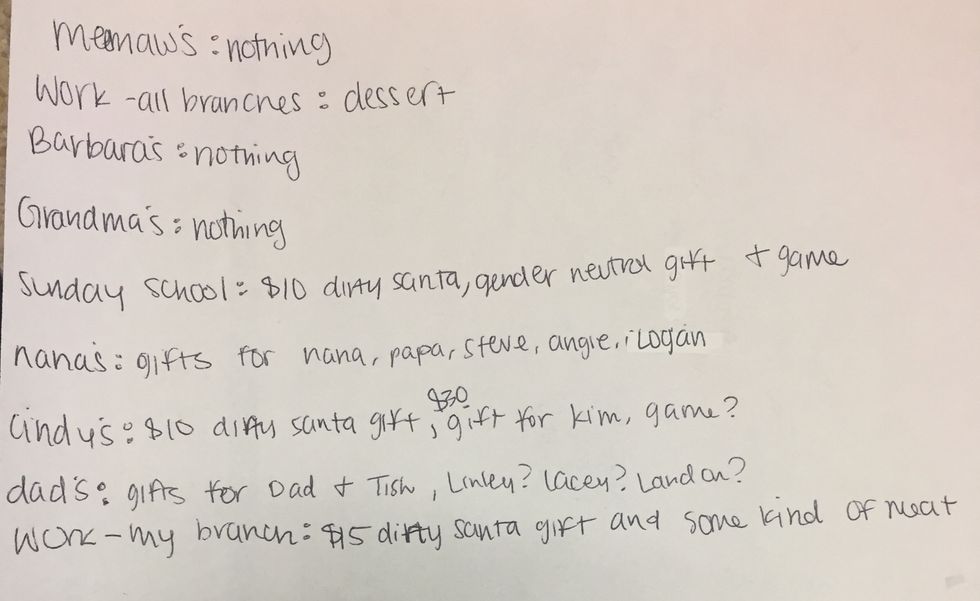 Memaw's : nothing
Work - all branches : dessert
Barbara's : nothing
Grandma's : nothing
Sunday school : $10 dirty santa, gender neutral gift + game
nana's : gifts for nana, papa, steve, angie, Logan
$30
Cindy's : $10 dirty santa gift, gift for kim, game?
dad's : gifts for Dad + Tish, Linley? Lacey? Landon?
Work - my branch : $15 dirty santa gift and some kind of meat